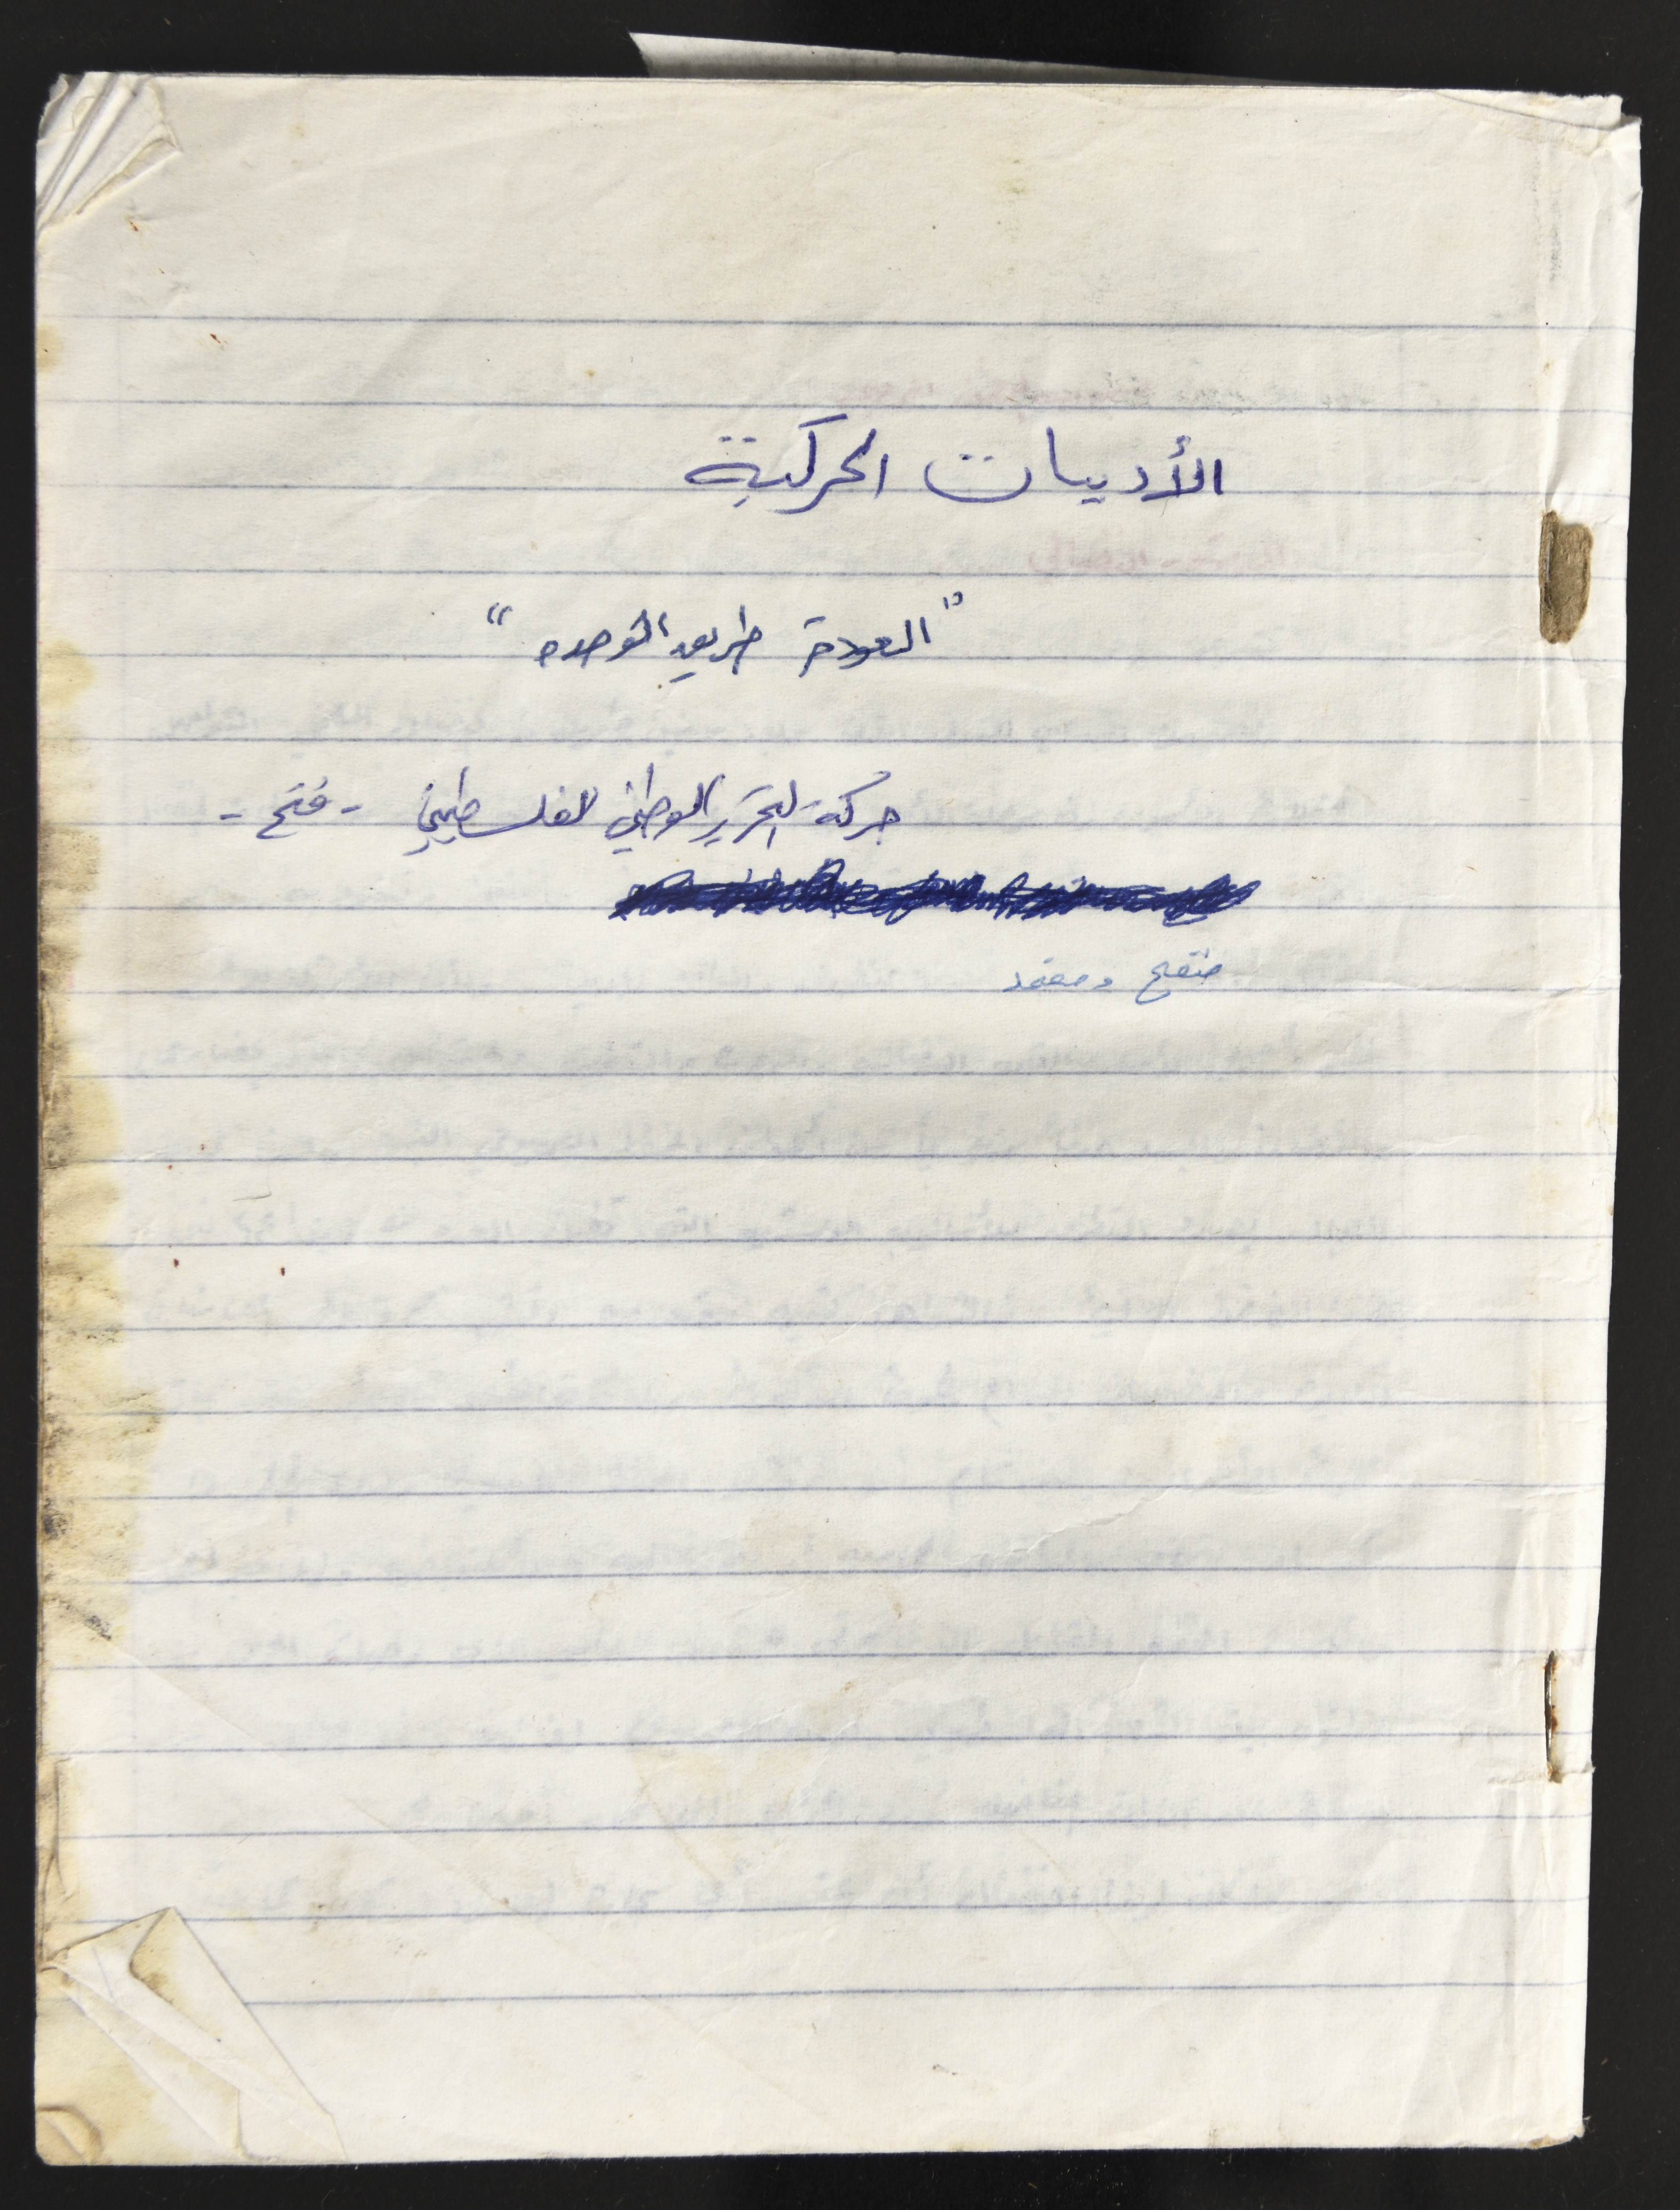 الأدبيات الحركية
"العودة طريق الوحده"
حركة التحرير الوطني الفلسطيني - فتح -
منقح ومعتمد